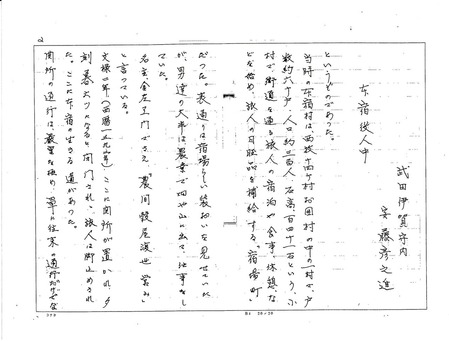 武田伊賀守内
安藤彦之進
本宿役人中
というものであった。
当時の本宿村は、西牧十四ケ村お囲村の中の一村で、戸
数約六十戸、人口約三百人、石高百四十一石という、小
村で街道を通る旅人の宿泊や食事、休憩な
どを始め、旅人の日用品を補給する。宿場町
だった。表通りは宿場らしい装おいを見せていた
が、男達の大半は、農業で畑や山に出て、仕事をし
ていた。
名主、金左エ門でさえ、"農間穀屋渡世営み"
と言っている。
文禄二年、(西暦一五九三年)ここに関所が置かれ、夕
刻暮六ツになると閉門され、旅人は街止めされ
た。ここに本宿の生きる道があった。
関所の通行は、厳重を極め、